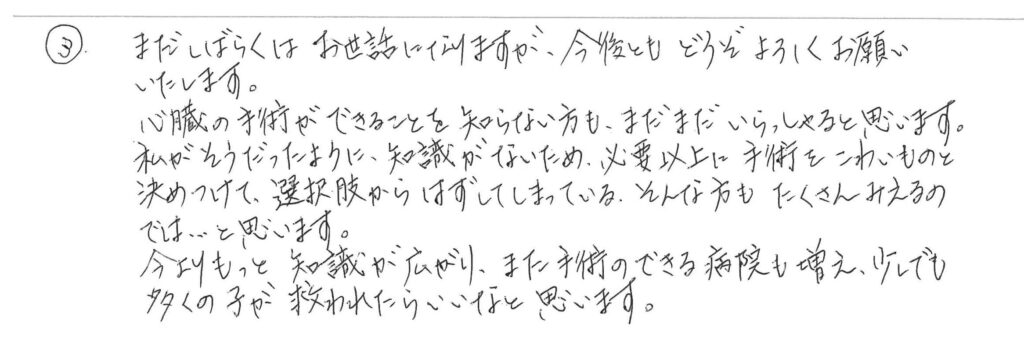 ③. まだしばらくは お世話になりますが、今後とも どうぞ よろしくお願い
いたします。
心臓の手術ができることを知らない方も、まだまだ いらっしゃると思います。
私がそうだったように、知識がないため、必要以上に 手術を こわいものと
決めつけて、選択肢から はずしてしまっている、そんな方も たくさんみえるの
では…と思います。
今よりもっと 知識が広がり、また手術のできる病院も増え、少しでも
多くの子が 救われたらいいなと 思います。